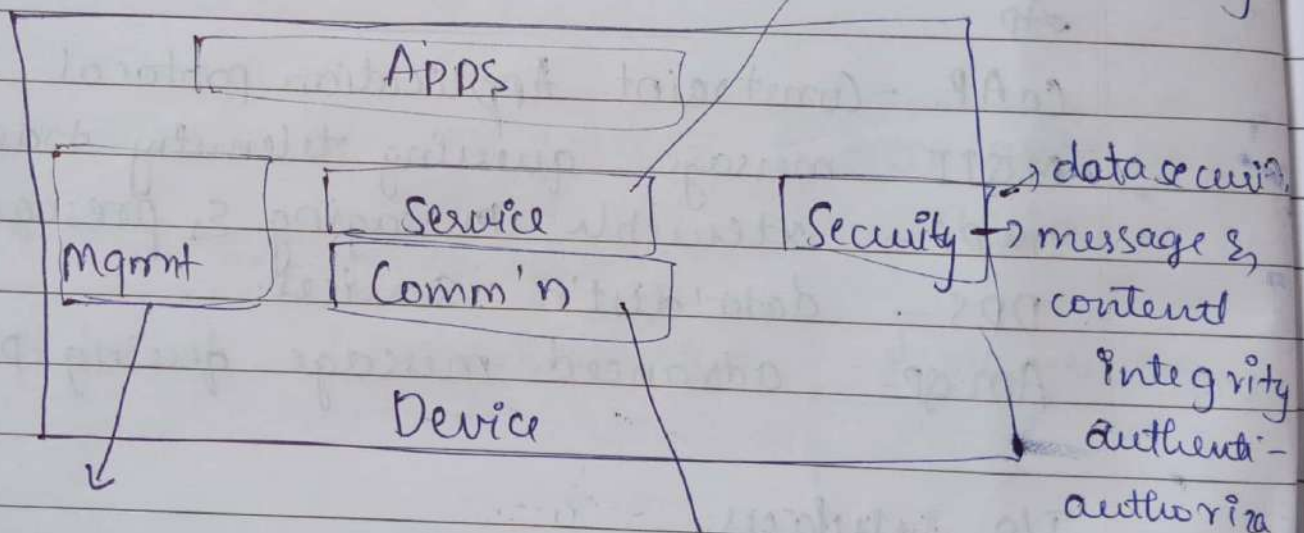 Apps
Mgmnt
Service
Comm'n
Security
Device
→ data securi
→ message &
content
integrity
authenti-
authoriza